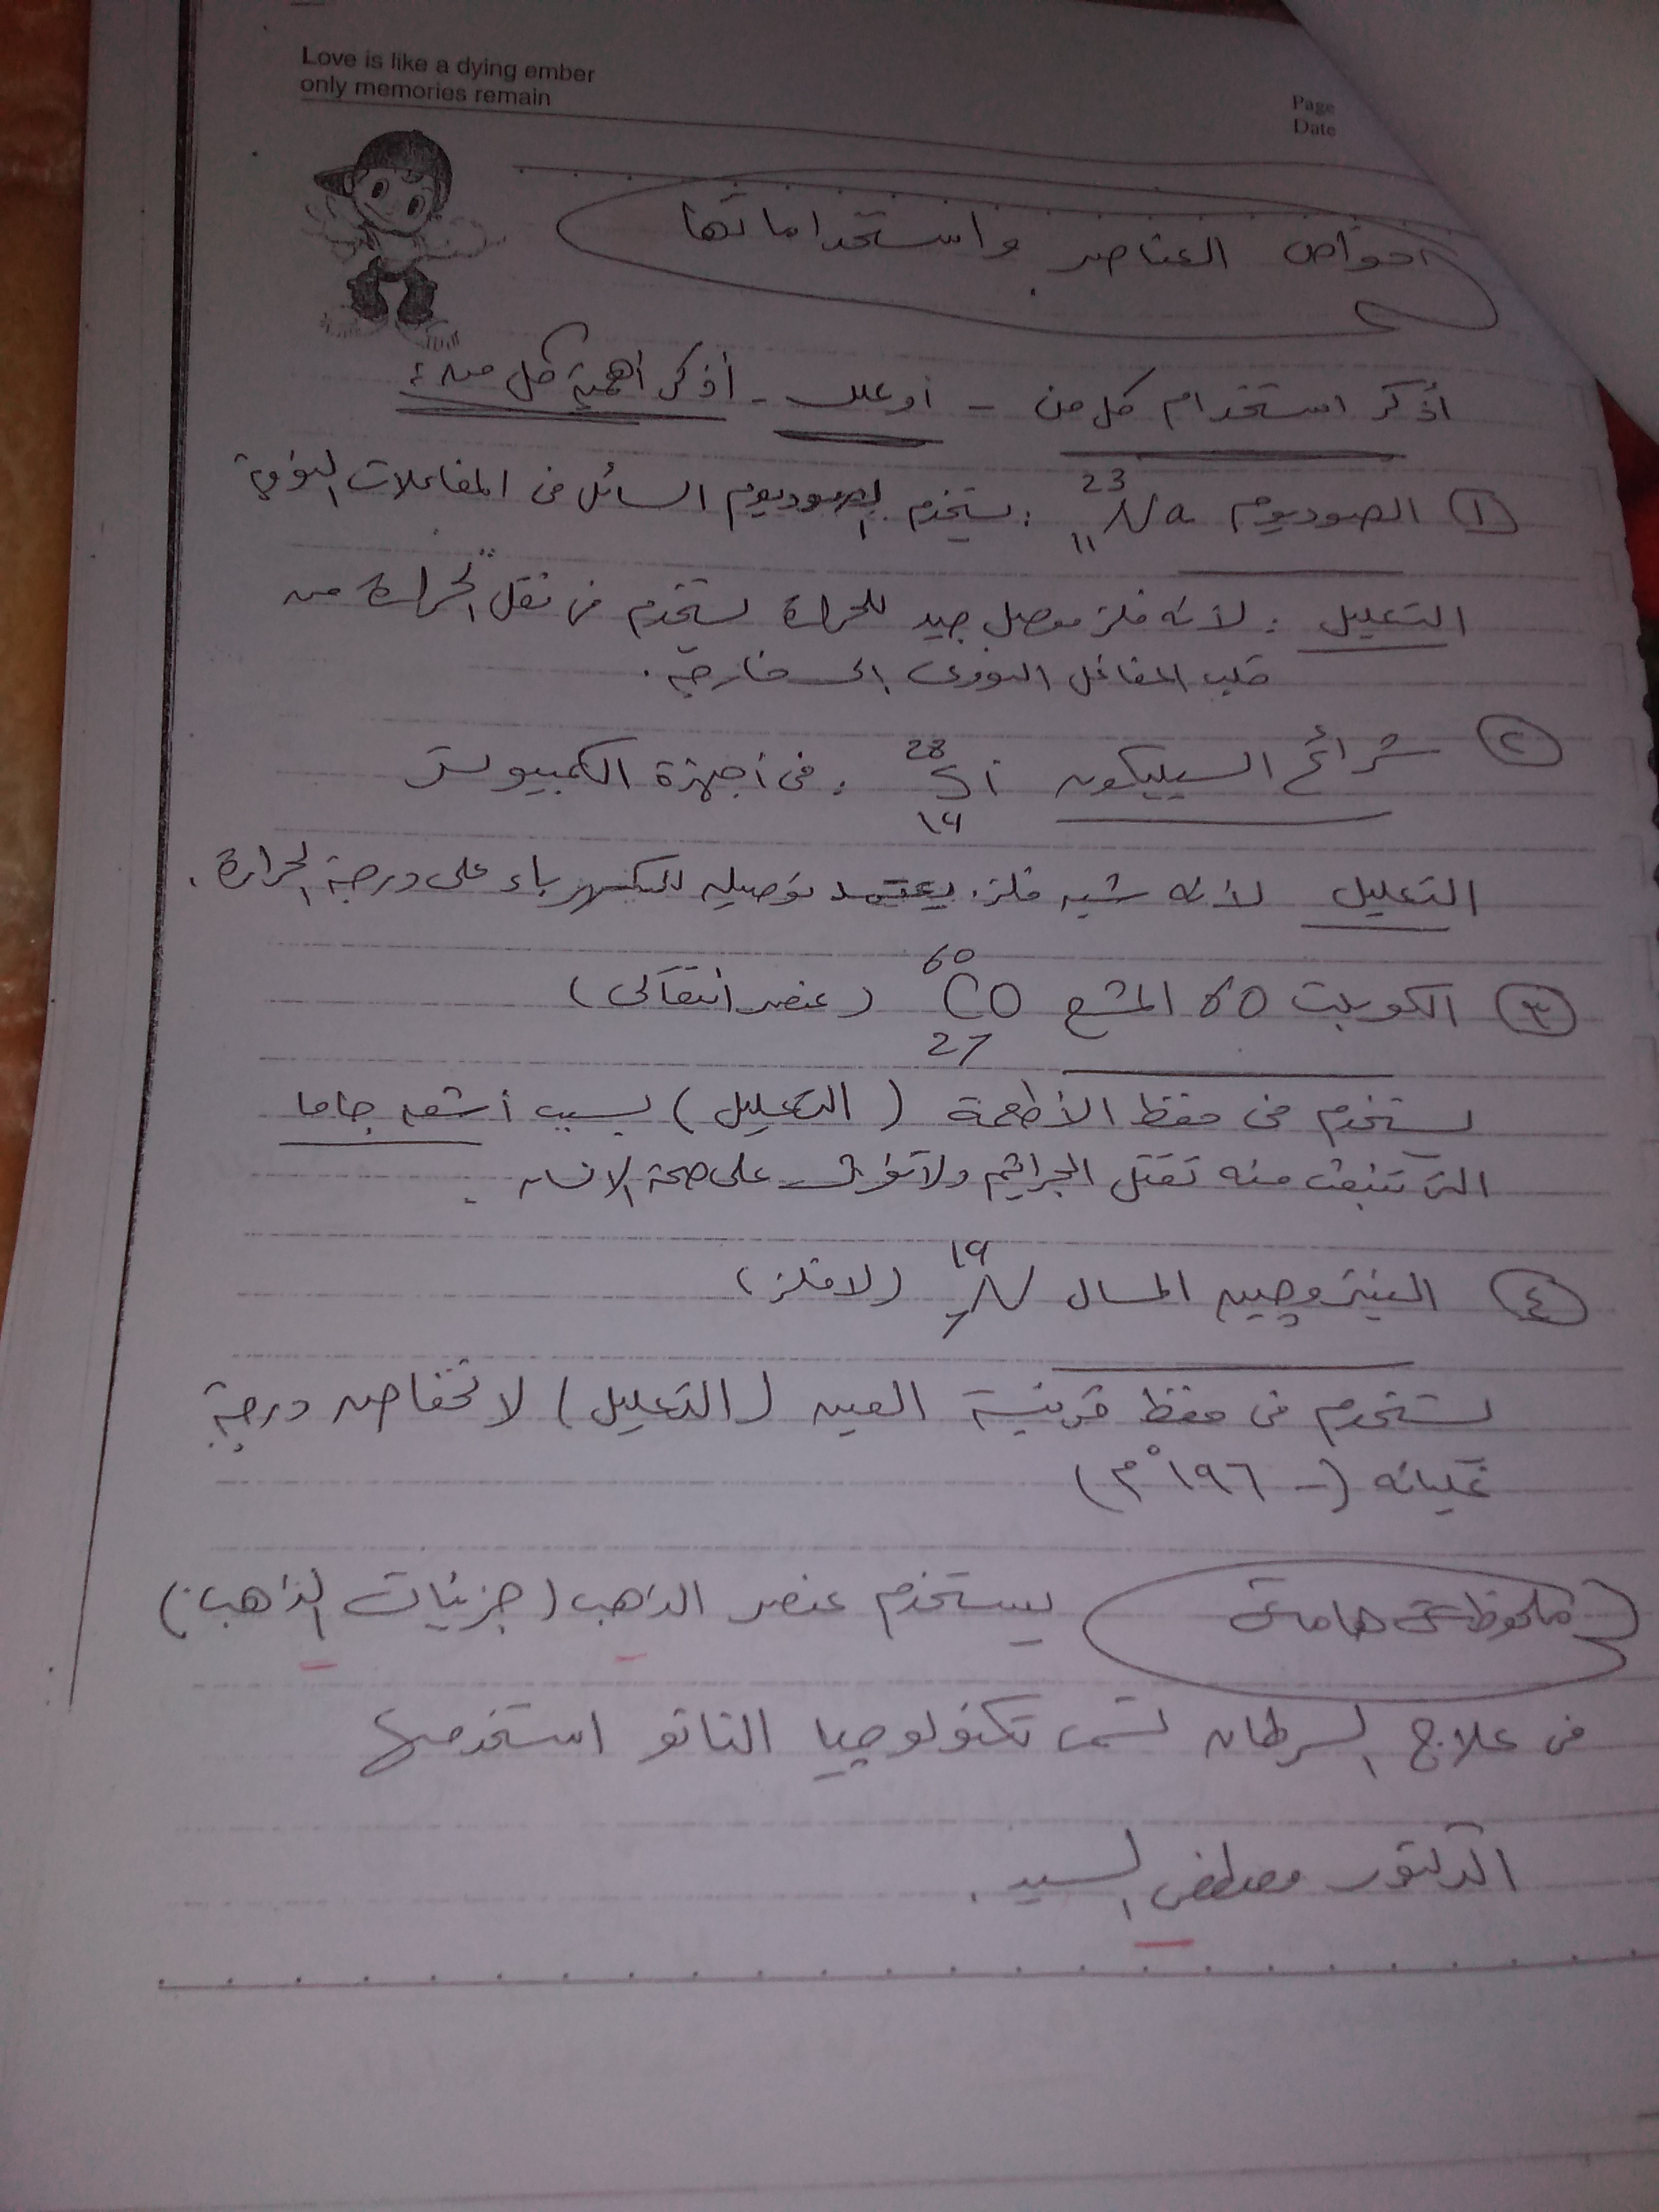 Love is like a dying ember
only memories remain
Page
Date
خواص العناصر واستخداماتها
أذكر استخدام كل من - أو علل - أذكر أهمية كل من :
① الصوديوم ²³₁₁Na : يستخدم الصوديوم السائل فى المفاعلات النووية
التعليل : لأنه فلز موصل جيد للحرارة يستخدم فى نقل الحرارة من
قلب المفاعل النووى الى خارجه .
② شرائح السيليكون ²⁸₁₄Si : فى أجهزة الكمبيوتر
التعليل لأنه شبه فلز يعتمد توصيله للكهرباء على درجة الحرارة .
③ الكوبلت 60 المشع ⁶⁰₂₇CO (عنصر انتقالى)
يستخدم فى حفظ الأطعمة (التعليل) بسبب أشعه جاما
التى تنبعث منه تقتل الجراثيم ولا تؤثر على صحة الانسان .
④ النيتروجين المسال ¹⁴₇N (لافلز)
يستخدم فى حفظ قرنية العين (التعليل) لانخفاض درجة
غليانه (-١٩٦°م)
ملحوظة هامة يستخدم عنصر الذهب (جزيئات الذهب)
فى علاج السرطان تسمى تكنولوجيا النانو استخدمها
الدكتور مصطفى السيد .